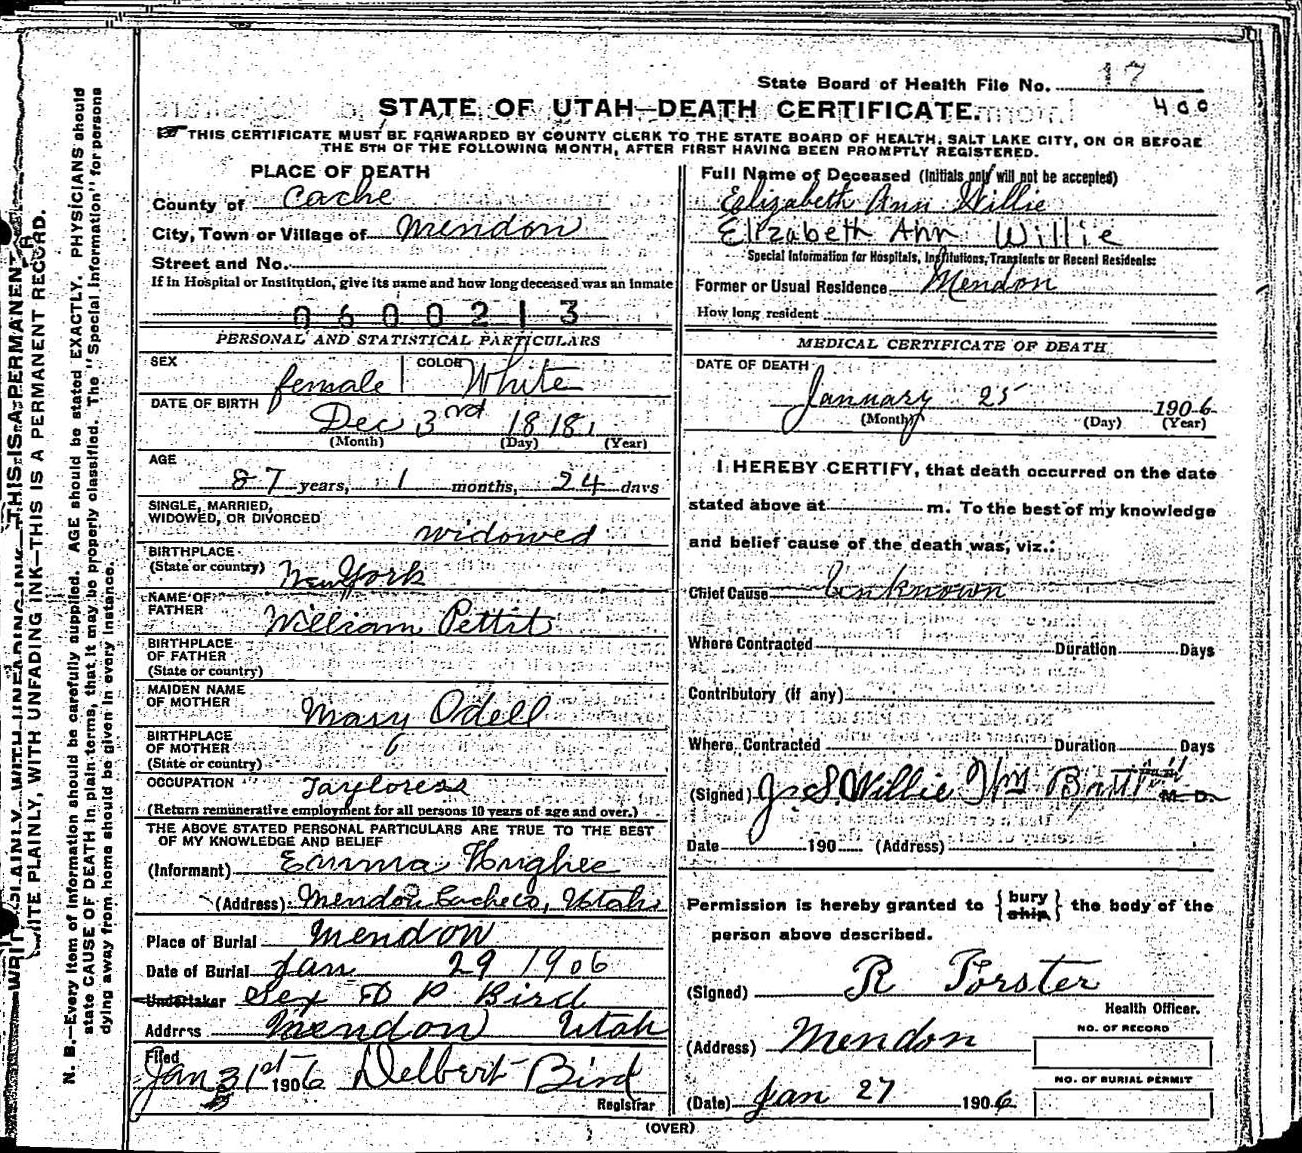 State Board of Health File No. 17
400
STATE OF UTAH—DEATH CERTIFICATE.
THIS CERTIFICATE MUST BE FORWARDED BY COUNTY CLERK TO THE STATE BOARD OF HEALTH, SALT LAKE CITY, ON OR BEFORE
THE 5TH OF THE FOLLOWING MONTH, AFTER FIRST HAVING BEEN PROMPTLY REGISTERED.
PLACE OF DEATH
County of Cache
City, Town or Village of Mendon
Street and No.
If in Hospital or Institution, give its name and how long deceased was an inmate
0600213
PERSONAL AND STATISTICAL PARTICULARS
SEX female COLOR White
DATE OF BIRTH
Dec 3rd 1818
(Month) (Day) (Year)
AGE
87 years, 1 months, 24 days
SINGLE, MARRIED,
WIDOWED, OR DIVORCED
widowed
BIRTHPLACE
(State or country) New York
NAME OF
FATHER William Pettit
BIRTHPLACE
OF FATHER
(State or country)
MAIDEN NAME
OF MOTHER Mary Odell
BIRTHPLACE
OF MOTHER
(State or country)
OCCUPATION Tayloress
(Return remunerative employment for all persons 10 years of age and over.)
THE ABOVE STATED PERSONAL PARTICULARS ARE TRUE TO THE BEST
OF MY KNOWLEDGE AND BELIEF
(Informant) Emma Hughes
(Address) Mendon Cache Co, Utah
Place of Burial Mendon
Date of Burial Jan 29 1906
Undertaker Sex D P Bird
Address Mendon Utah
Filed
Jan 31st 1906 Delbert Bird
Registrar
Full Name of Deceased (Initials only will not be accepted)
Elizabeth Ann Willie
Elizabeth Ann Willie
Special Information for Hospitals, Institutions, Transients or Recent Residents:
Former or Usual Residence Mendon
How long resident
MEDICAL CERTIFICATE OF DEATH
DATE OF DEATH
January 25 1906
(Month) (Day) (Year)
I HEREBY CERTIFY, that death occurred on the date
stated above at m. To the best of my knowledge
and belief cause of the death was, viz.:
Chief Cause Unknown
Where Contracted Duration Days
Contributory (if any)
Where Contracted Duration Days
(Signed) J S Willie Wm M. D.
Date 190 (Address)
Permission is hereby granted to {bury ship} the body of the
person above described.
(Signed) R Forster
Health Officer.
(Address) Mendon
NO. OF RECORD
NO. OF BURIAL PERMIT
(Date) Jan 27 1906
(OVER)
WRITE PLAINLY, WITH UNFADING INK—THIS IS A PERMANENT
WRITE PLAINLY, WITH UNFADING INK—THIS IS A PERMANENT RECORD.
N. B.—Every item of information should be carefully supplied. AGE should be stated EXACTLY. PHYSICIANS should
state CAUSE OF DEATH in plain terms, that it may be properly classified. The "Special Information" for persons
dying away from home should be given in every instance.